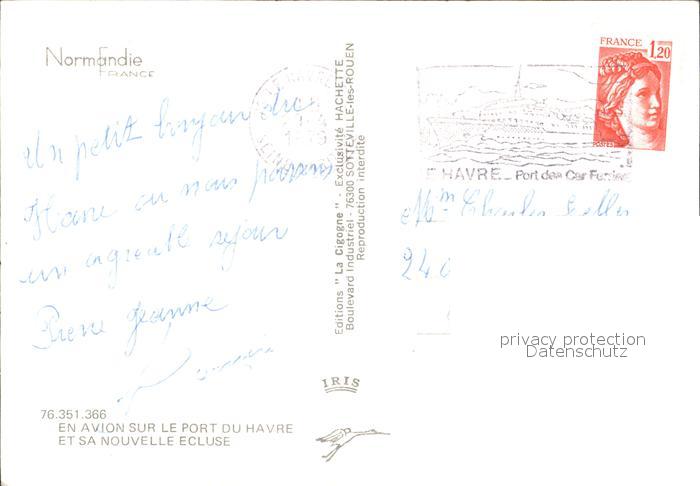 Normandie
FRANCE
Un petit bonjour du
Havre ou nous passons
un agreable sejour
Pierre Jeanne
Editions " La Cigogne " - Exclusivité HACHETTE
Boulevard Industriel - 76300 SOTTEVILLE-les-ROUEN
Reproduction interdite
IRIS
76.351.366
EN AVION SUR LE PORT DU HAVRE
ET SA NOUVELLE ECLUSE
FRANCE
1,20
POSTES
E HAVRE _ Port des Car Ferries
Mm Charles
240
privacy protection
Datenschutz